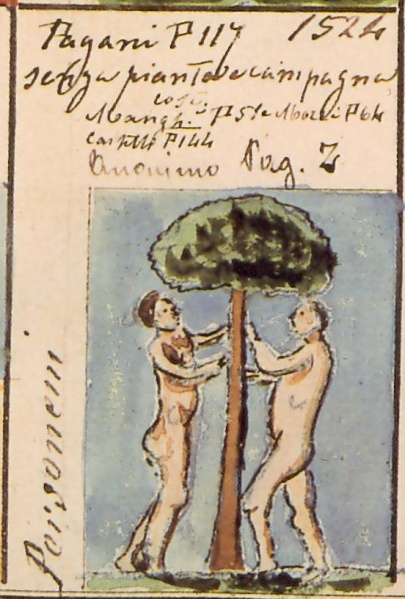 Pagani P 117 1524
senza pianta e campagna
così
Mangh. P 51 e Mozzi P 64
Castelli P 144
Anonimo Pag. 2
Personeni